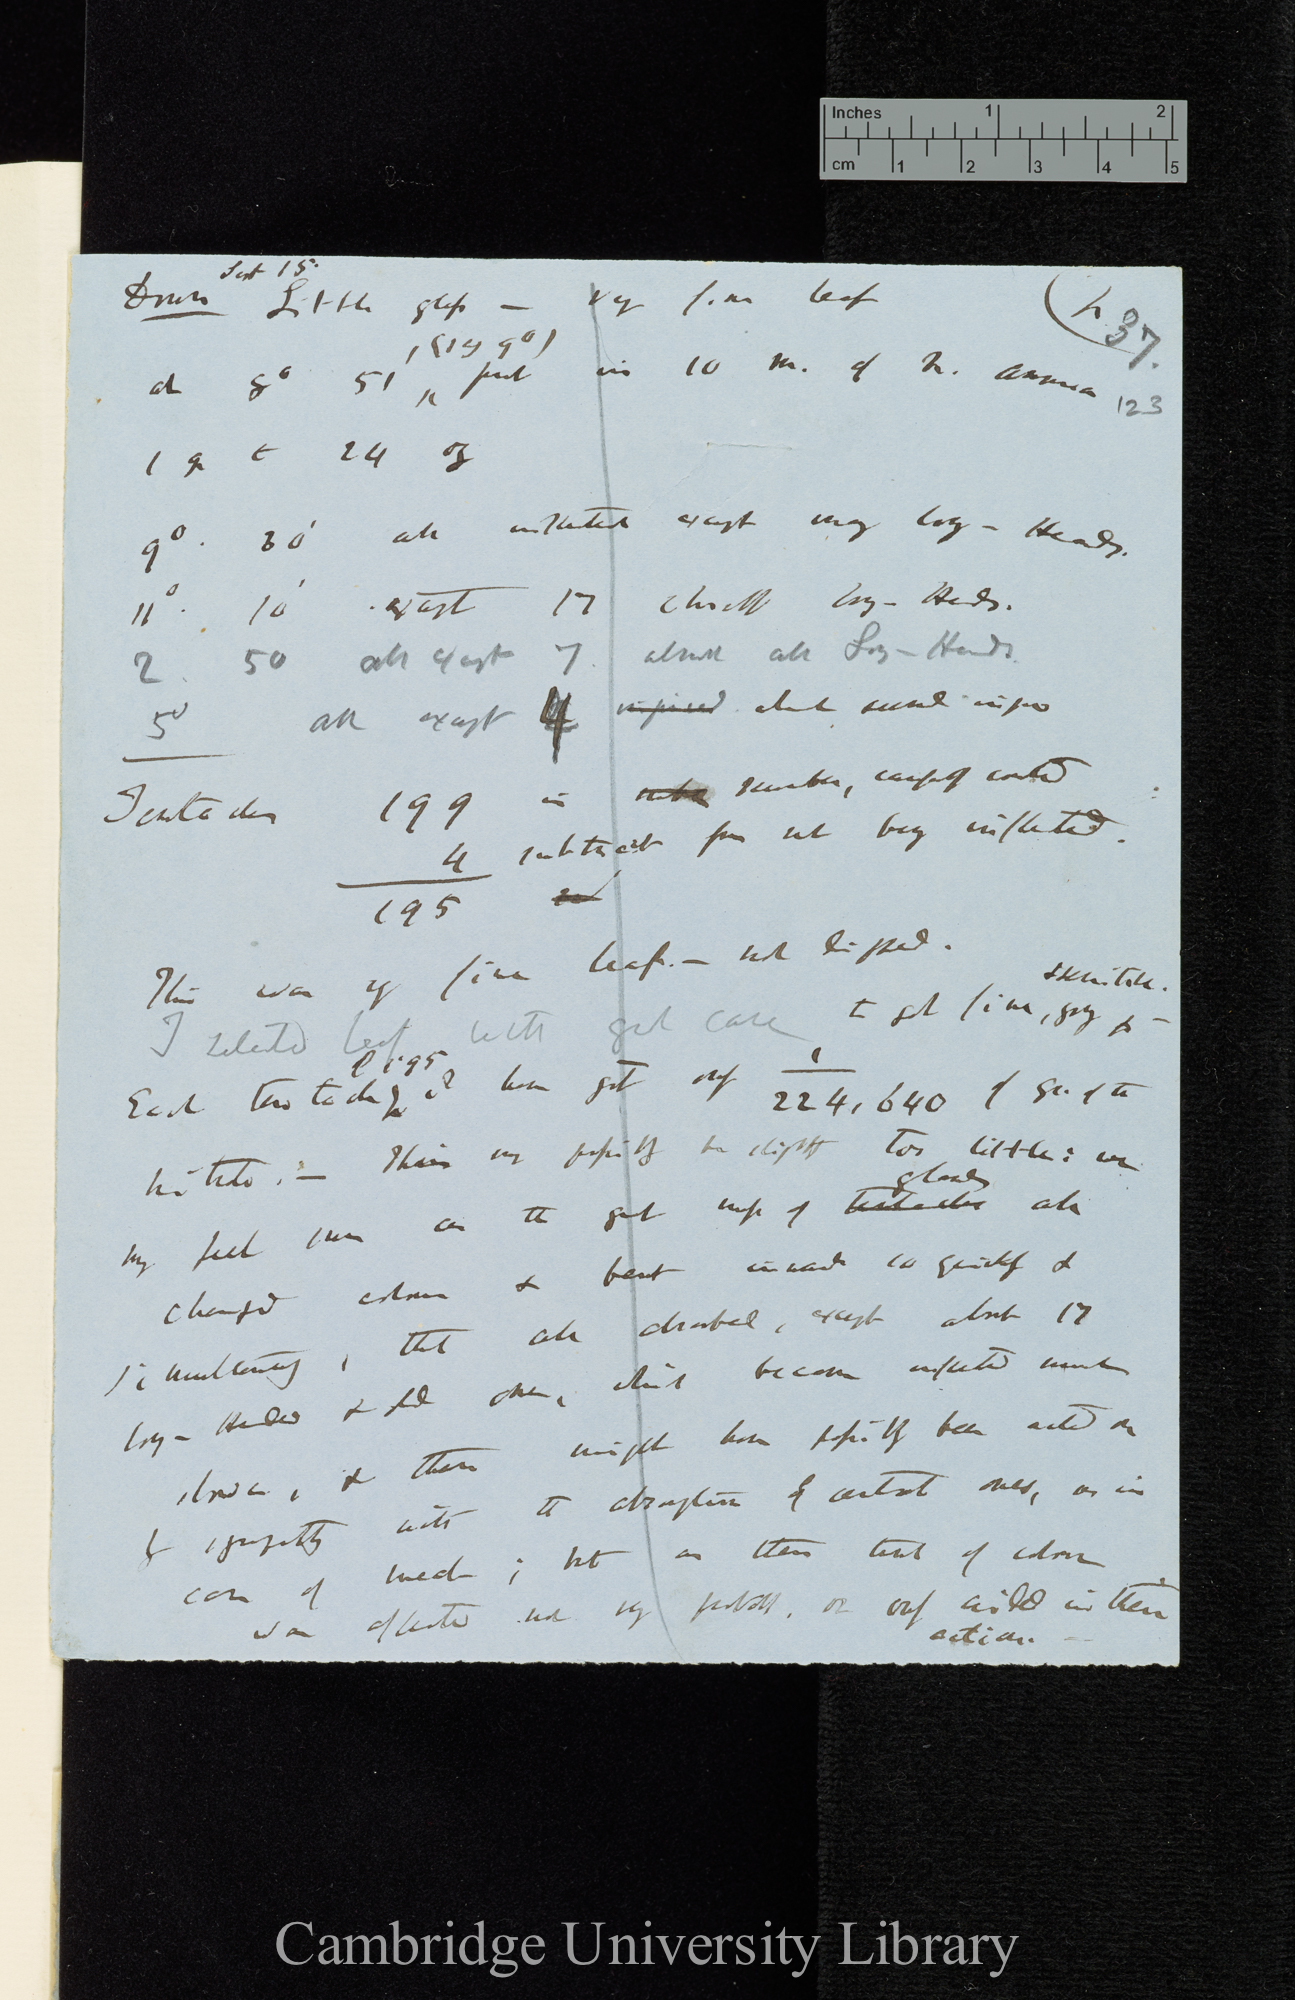 Inches 1 2
cm 1 2 3 4 5
Down Sept 15. Little glass — very fine leaf
37.
(say 9°)
at 8° 51' put in 10 m. of N. ammonia
123
1 gr to 24 oz
9°. 30' all inflected except many long-Heads.
11°. 10' except 17 chiefly long-Heads.
2. 50 all except 7. almost all Long-Heads
5° all except 4 injured which seemed injured
Tentacles 199 in number, carefully counted
4 subtract for not being inflected.
195
This was very fine leaf. — not dipped.
I selected leaf with great care to get fine, young &
sensitive.
Each tentacle of 195 could have got only 1/224,640 of gr. of the
nitrate. — This may possibly be slightly too little: we
may feel sure as the great mass of tentacles glands all
changed colour & bent inwards so quickly &
simultaneously, that all absorbed, except about 17
long-Headed & old ones, which became inflected much
slower, & these might have possibly been acted on
by sympathy with the absorption of central ones, as in
case of meat; but as their tint of colour
was affected not very probable, or only aided in their
action. —
Cambridge University Library